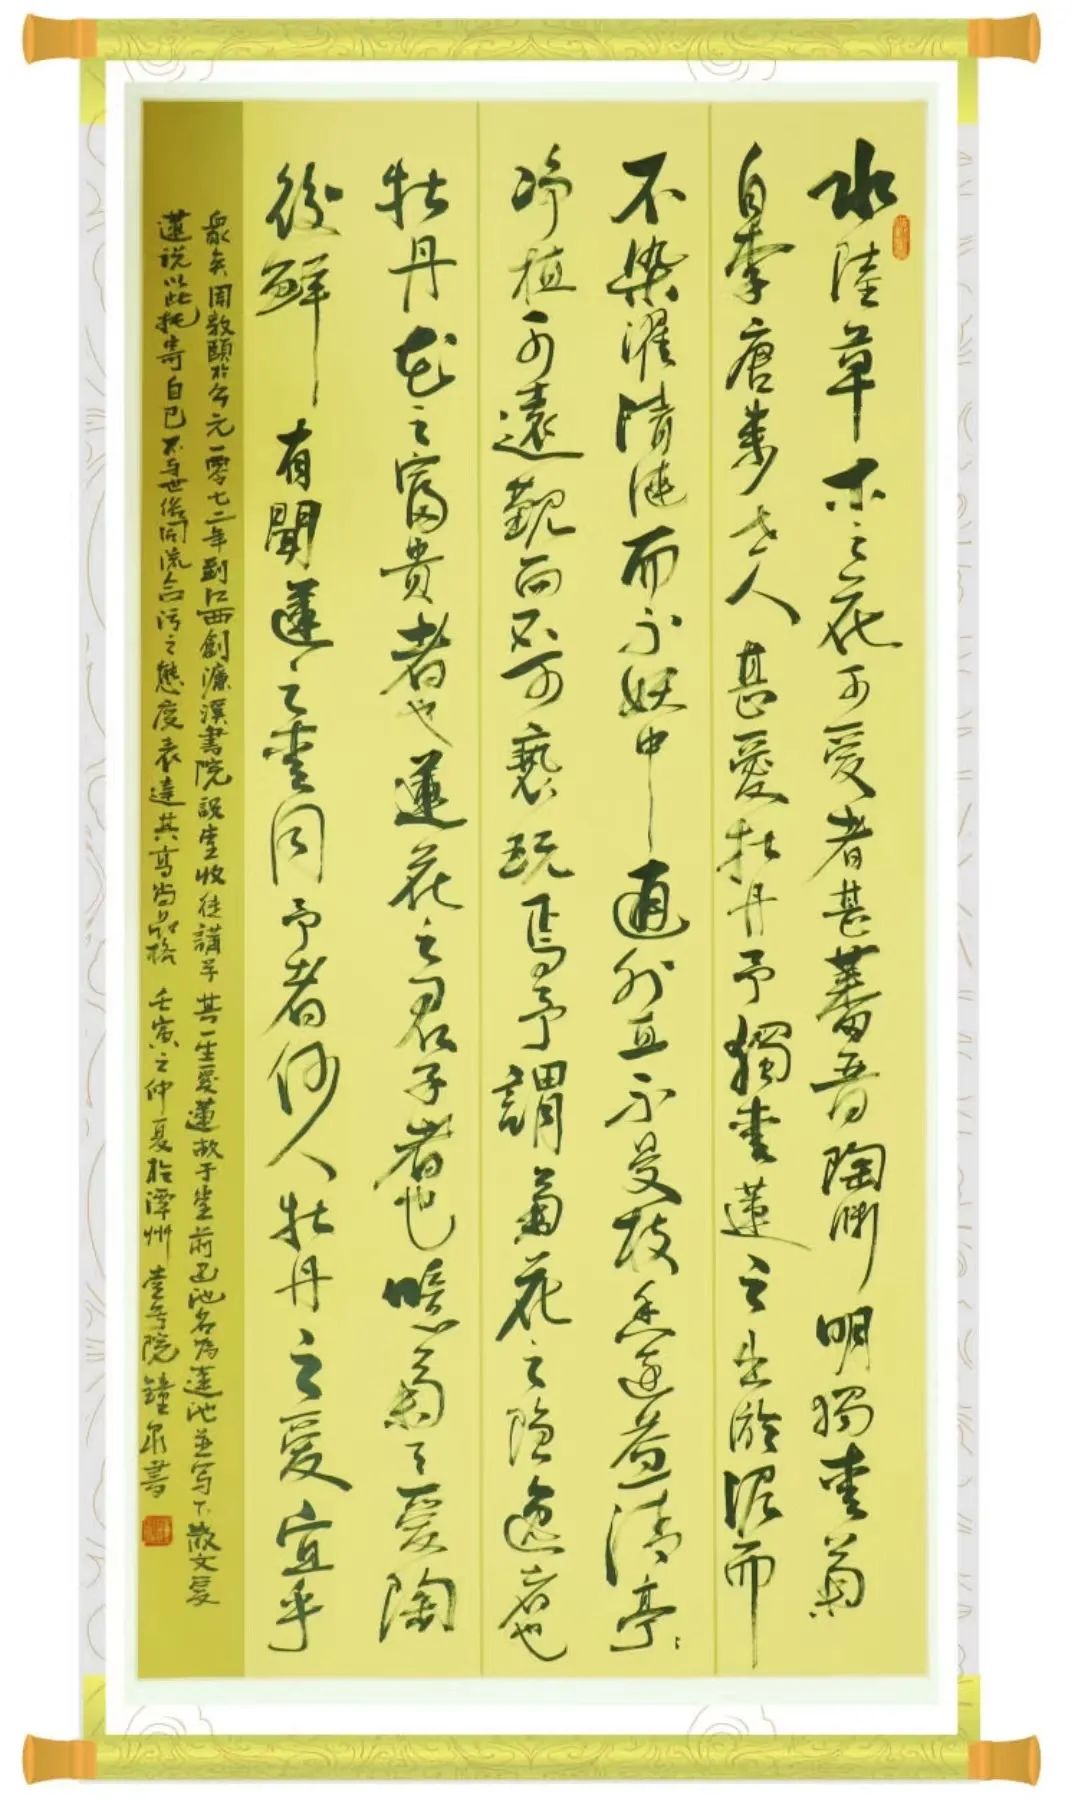 水陸草木之花可愛者甚蕃晉陶淵明獨愛菊
自李唐來世人甚愛牡丹予獨愛蓮之出淤泥而
不染濯清漣而不妖中通外直不曼枝香遠益清亭:
淨植可遠觀而不可褻玩焉予謂菊花之隱逸者也
牡丹花之富貴者也蓮花之君子者也噫菊之愛陶
後鮮有聞蓮之愛同予者何人牡丹之愛宜乎
眾矣周敦頤於公元一零七二年到江西創濂溪書院設堂收徒講学其一生愛蓮故于堂前造池名為蓮池並写下散文愛
蓮说以此托寄自己不与世俗同流合污之態度表達其高尚品格 壬寅之仲夏於潭州壹号院鐘泉書